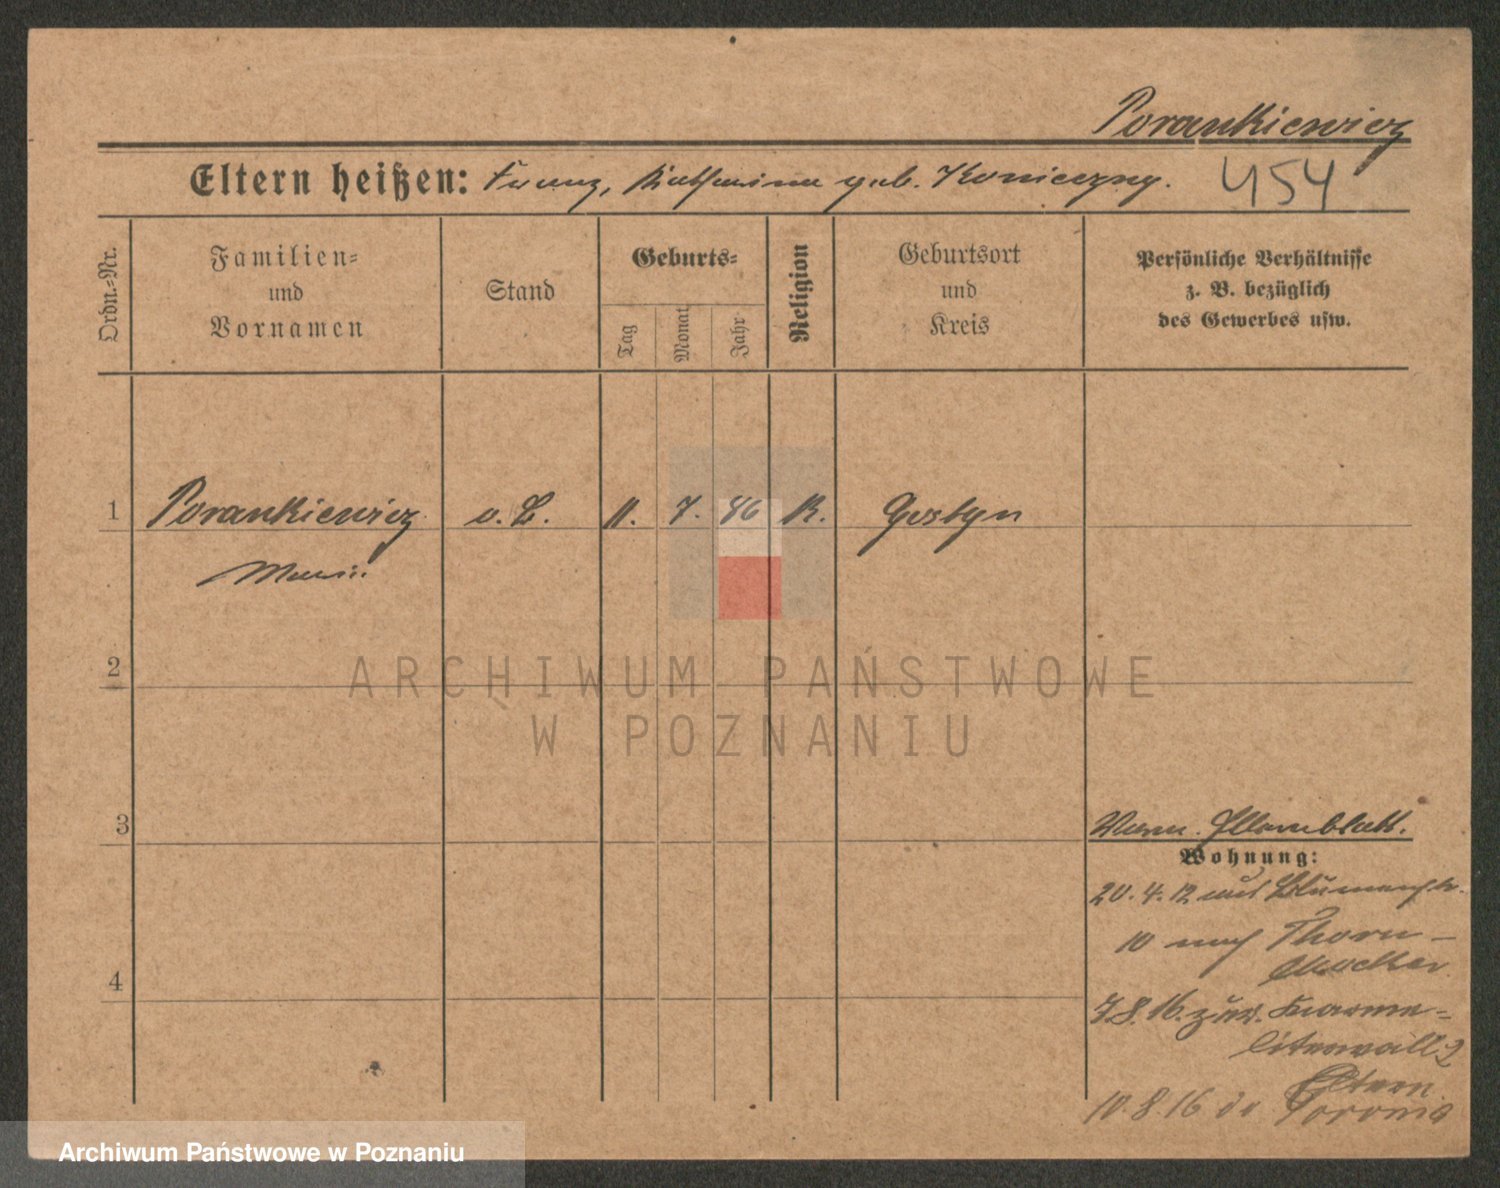 Porankiewicz
Eltern heißen: Franz, Katharina geb. Konieczny. 454
Ordn.-Nr.
Familien-
und
Vornamen
Stand
Geburts-
Tag
Monat
Jahr
Religion
Geburtsort
und
Kreis
Persönliche Verhältnisse
z. B. bezüglich
des Gewerbes usw.
1 Porankiewicz o. B. 11. 7. 86 K. Gostyn
Marie
2
ARCHIWUM PAŃSTWOWE
W POZNANIU
3
Elternblatt.
Wohnung:
20. 4. 12 aus Blumenstr.
10 nach Thorn-
Mocker
7.8.16. zur. Karme-
literwall 2
Eltern
10. 8. 16
4
Archiwum Państwowe w Poznaniu